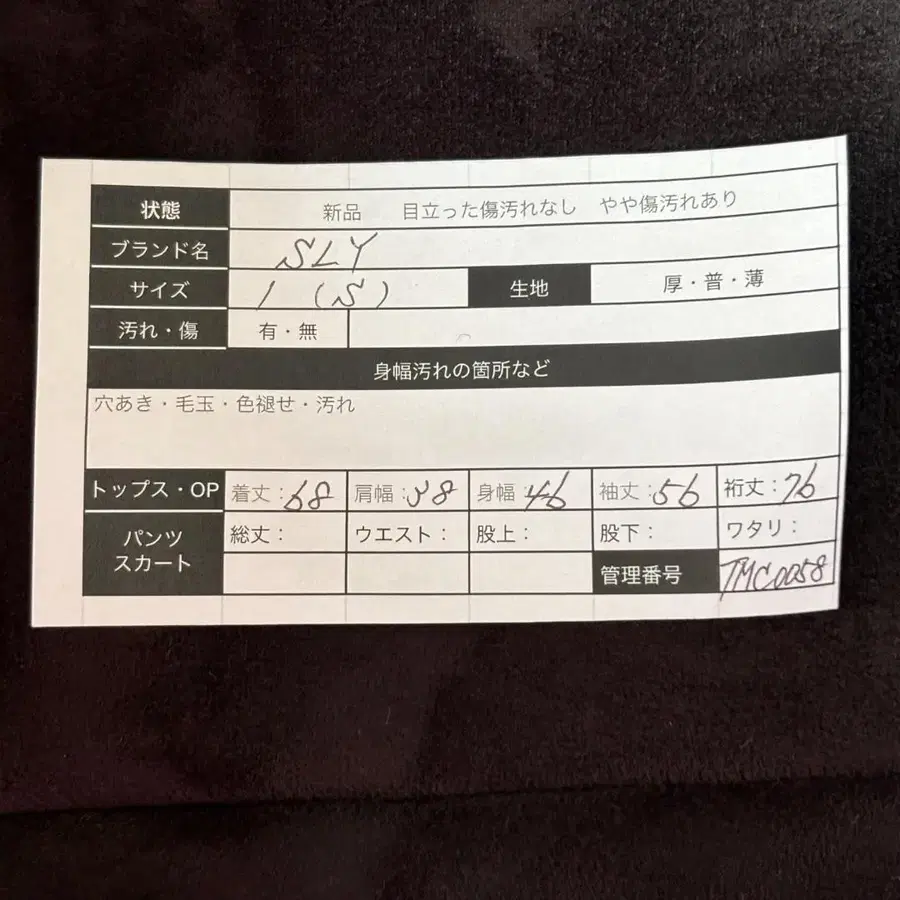 状態 新品 目立った傷汚れなし やや傷汚れあり
ブランド名 SLY
サイズ 1 (S) 生地 厚・普・薄
汚れ・傷 有・無
身幅汚れの箇所など
穴あき・毛玉・色褪せ・汚れ
トップス・OP 着丈：68 肩幅：38 身幅：46 袖丈：56 裄丈：76
パンツ スカート 総丈： ウエスト： 股上： 股下： ワタリ：
管理番号 TMC0058